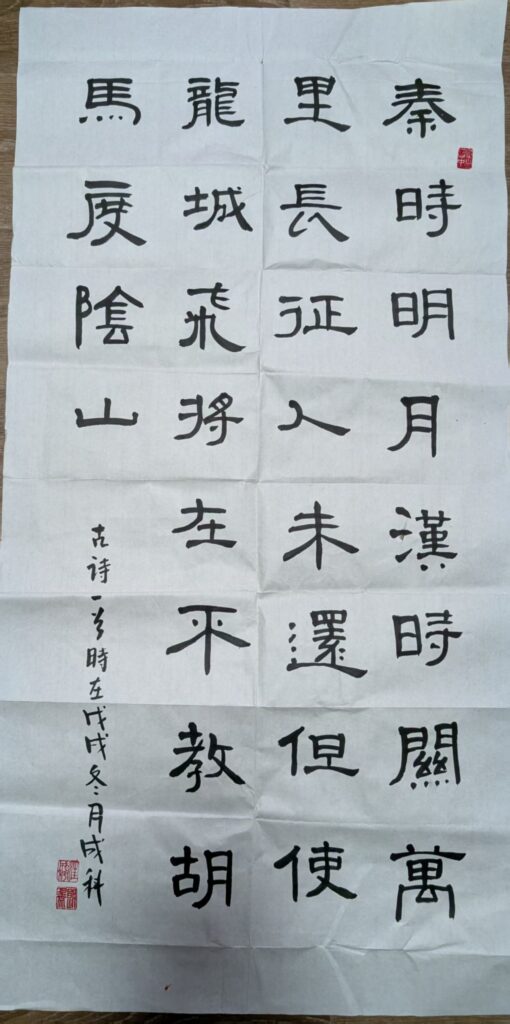 秦時明月漢時關萬
里長征人未還但使
龍城飛將在不教胡
馬度陰山
古詩一首時在戊戌冬月成科